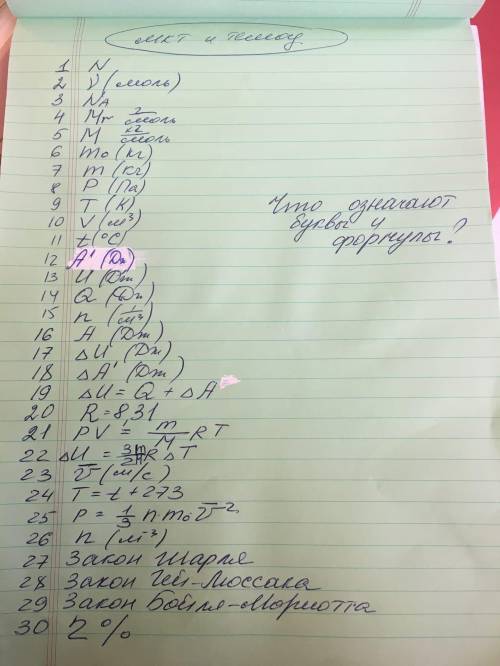 мкт и термод
1 N
2 ν (моль)
3 NA
4 Mr г/моль
5 M кг/моль
6 m₀ (кг)
7 m (кг)
8 P (Па)
9 T (К)
10 V (м³)
11 t (°C)
12 A' (Дж)
13 U (Дж)
14 Q (Дж)
15 n (1/м³)
16 A (Дж)
17 ΔU (Дж)
18 ΔA' (Дж)
19 ΔU = Q + ΔA
20 R = 8,31
21 PV = m/M RT
22 ΔU = 3m/2M R ΔT
23 v̅ (м/с)
24 T = t + 273
25 P = 1/3 n m₀ v̅²
26 n (м³)
27 Закон Шарля
28 Закон Гей-Люссака
29 Закон Бойля-Мариотта
30 η %
Что означают
буквы и
формулы?